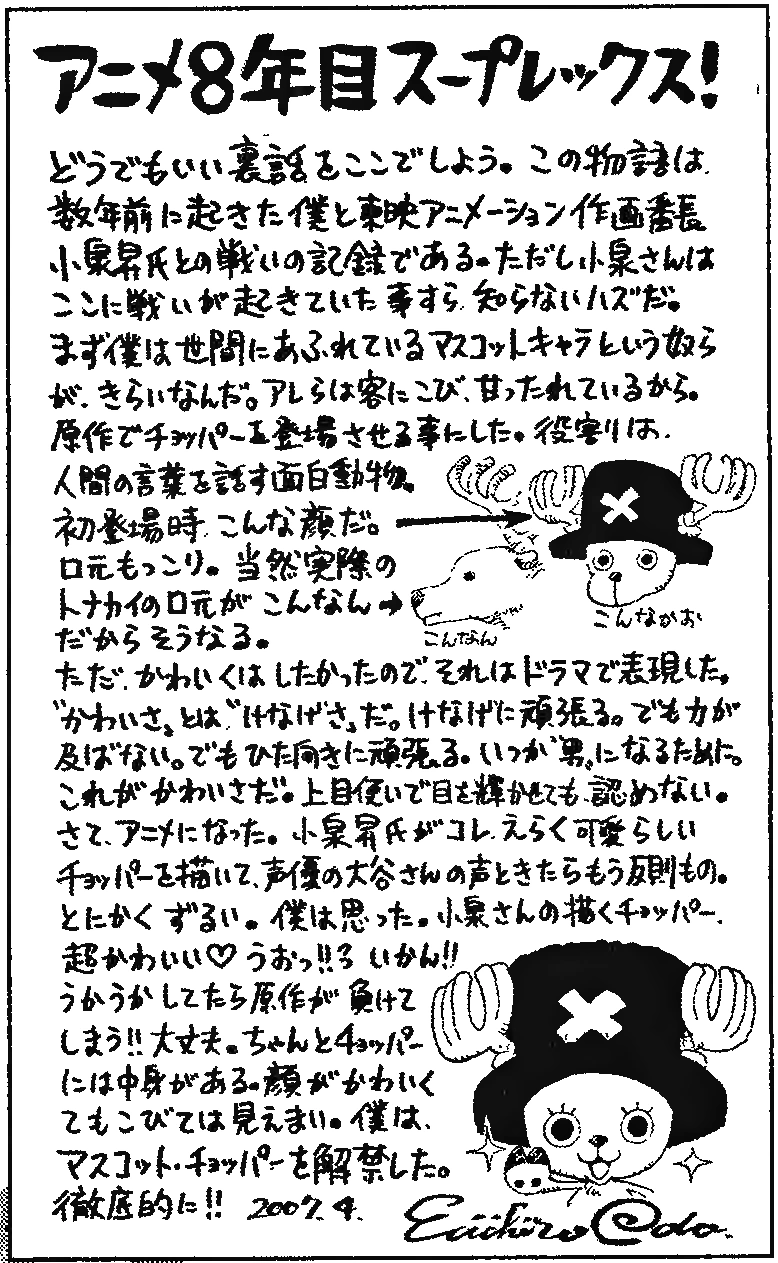 アニメ8年目スープレックス!
どうでもいい裏話をここでしよう。この物語は、
数年前に起きた僕と東映アニメーション作画番長
小泉昇氏との戦いの記録である。ただし小泉さんは
ここに戦いが起きていた事すら、知らないハズだ。
まず僕は世間にあふれているマスコットキャラという奴ら
が、きらいなんだ。アレらは客にこび、甘ったれているから。
原作でチョッパーを登場させる事にした。役割りは、
人間の言葉を話す面白動物。
初登場時、こんな顔だ。
口元もっこり。当然実際の
トナカイの口元が こんなん→
だからそうなる。
こんなん
こんなかお
ただ、かわいくはしたかったので、それはドラマで表現した。
"かわいさ"とは、"けなげさ"だ。けなげに頑張る。でも力が
及ばない。でもひた向きに頑張る。いつか"男"になるために。
これがかわいさだ。上目使いで目を輝かせても、認めない。
さて、アニメになった。小泉昇氏がコレ、えらく可愛らしい
チョッパーを描いて、声優の大谷さんの声ときたらもう反則もの。
とにかくずるい。僕は思った。小泉さんの描くチョッパー、
超かわいい♡ うおっ!!う いかん!!
うかうかしてたら原作が負けて
しまう!!大丈夫。ちゃんとチョッパー
には中身がある。顔がかわいく
てもこびては見えまい。僕は、
マスコット・チョッパーを解禁した。
徹底的に!! 2007.4.
Eiichiro Oda.